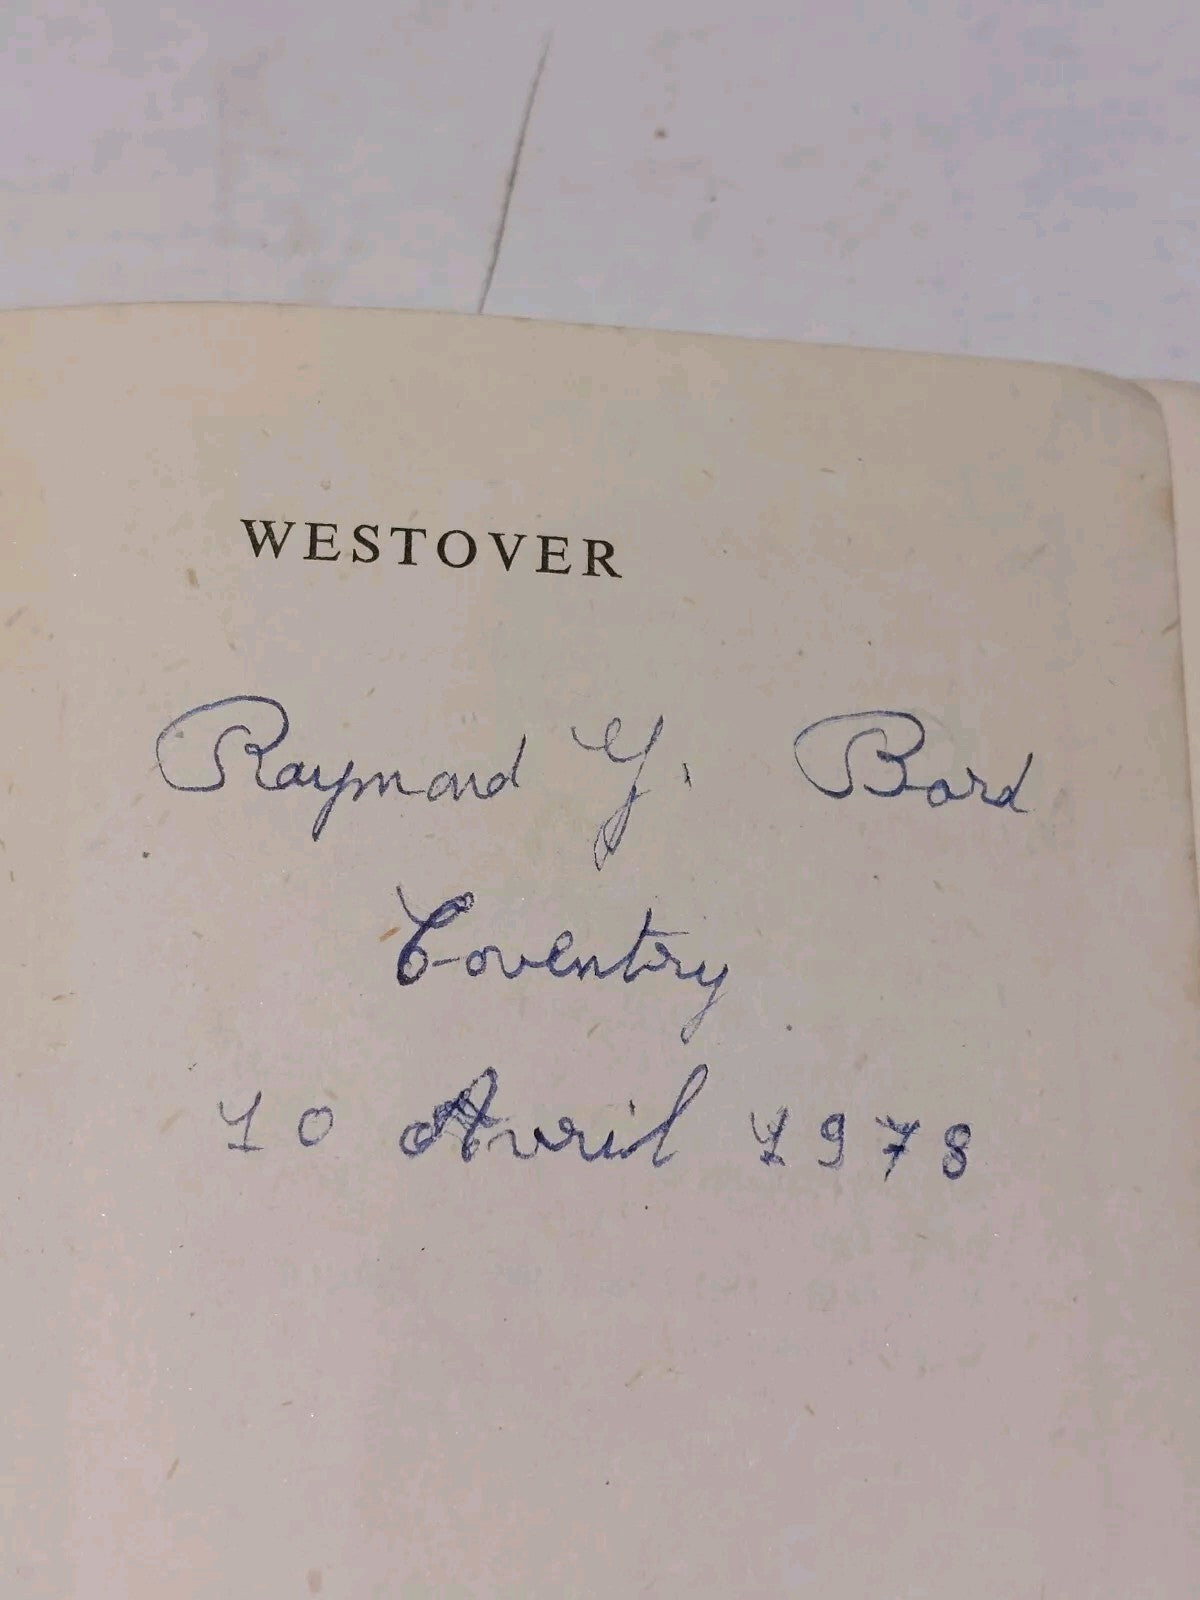 WESTOVER
Raymond Y. Bord
Coventry
10 Avril 1978